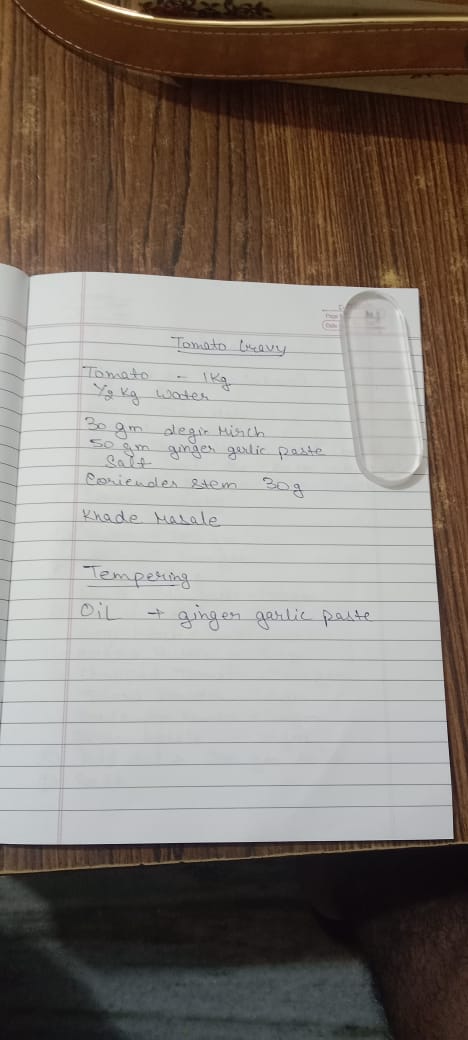 Page
Date
Tomato Gravy
Tomato - 1Kg
1/2 Kg Water
30 gm degir Mirch
50 gm ginger garlic paste
Salt
Coriender stem 30g
Khade Masale
Tempering
Oil + ginger garlic paste